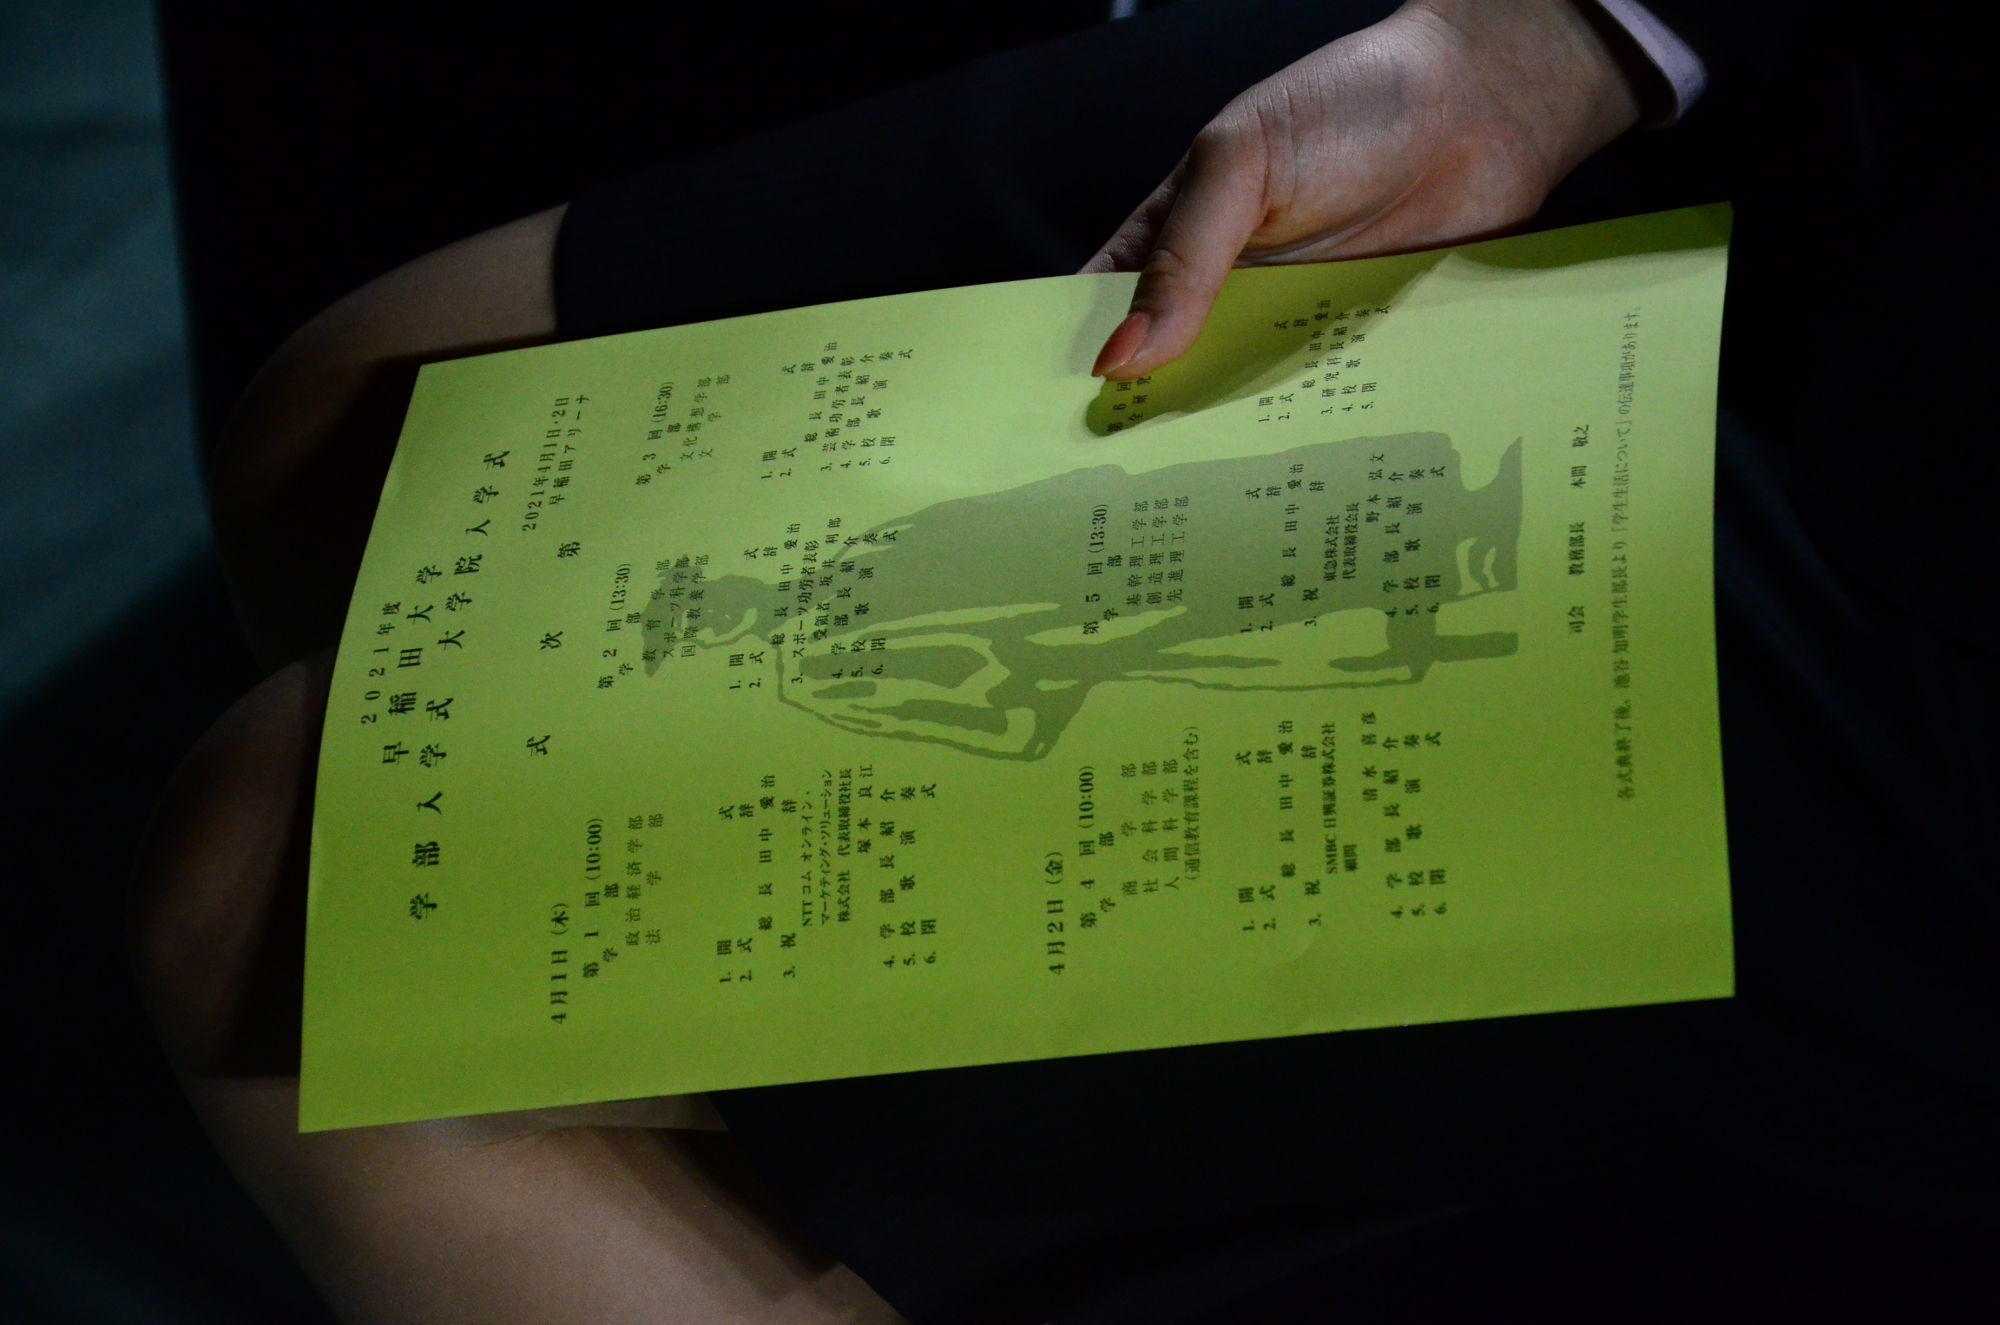 2021年度
早稲田大学
学部入学式 大学院入学式
2021年4月1日・2日
早稲田アリーナ
式次第
4月1日(木)
第1回(10:00)
学部
政治経済学部
法学部
1. 開式
2. 式辞
総長 田中愛治
3. 祝辞
NTTコム オンライン・
マーケティング・ソリューション
株式会社 代表取締役社長
塚本良江
4. 学部長紹介
5. 校歌演奏
6. 閉式
第2回(13:30)
学部
教育学部
スポーツ科学部
国際教養学部
1. 開式
2. 式辞
総長 田中愛治
3. スポーツ功労者表彰
受領者 坂井利郎
4. 学部長紹介
5. 校歌演奏
6. 閉式
第3回(16:30)
学部
文化構想学部
文学部
1. 開式
2. 式辞
総長 田中愛治
3. 芸術功労者表彰
4. 学部長紹介
5. 校歌演奏
6. 閉式
4月2日(金)
第4回(10:00)
学部
商学部
社会科学部
人間科学部
(通信教育課程を含む)
1. 開式
2. 式辞
総長 田中愛治
3. 祝辞
SMBC日興証券株式会社
顧問
清水喜彦
4. 学部長紹介
5. 校歌演奏
6. 閉式
第5回(13:30)
学部
基幹理工学部
創造理工学部
先進理工学部
1. 開式
2. 式辞
総長 田中愛治
3. 祝辞
東急株式会社
代表取締役会長
野本弘文
4. 学部長紹介
5. 校歌演奏
6. 閉式
第6回
全研究
1. 開式
2. 式辞
総長 田中愛治
3. 研究科長紹介
4. 校歌演奏
5. 閉式
司会 教務部長 本間 敬之
各式典終了後、池谷知明学生部長より「学生生活について」の伝達事項があります。